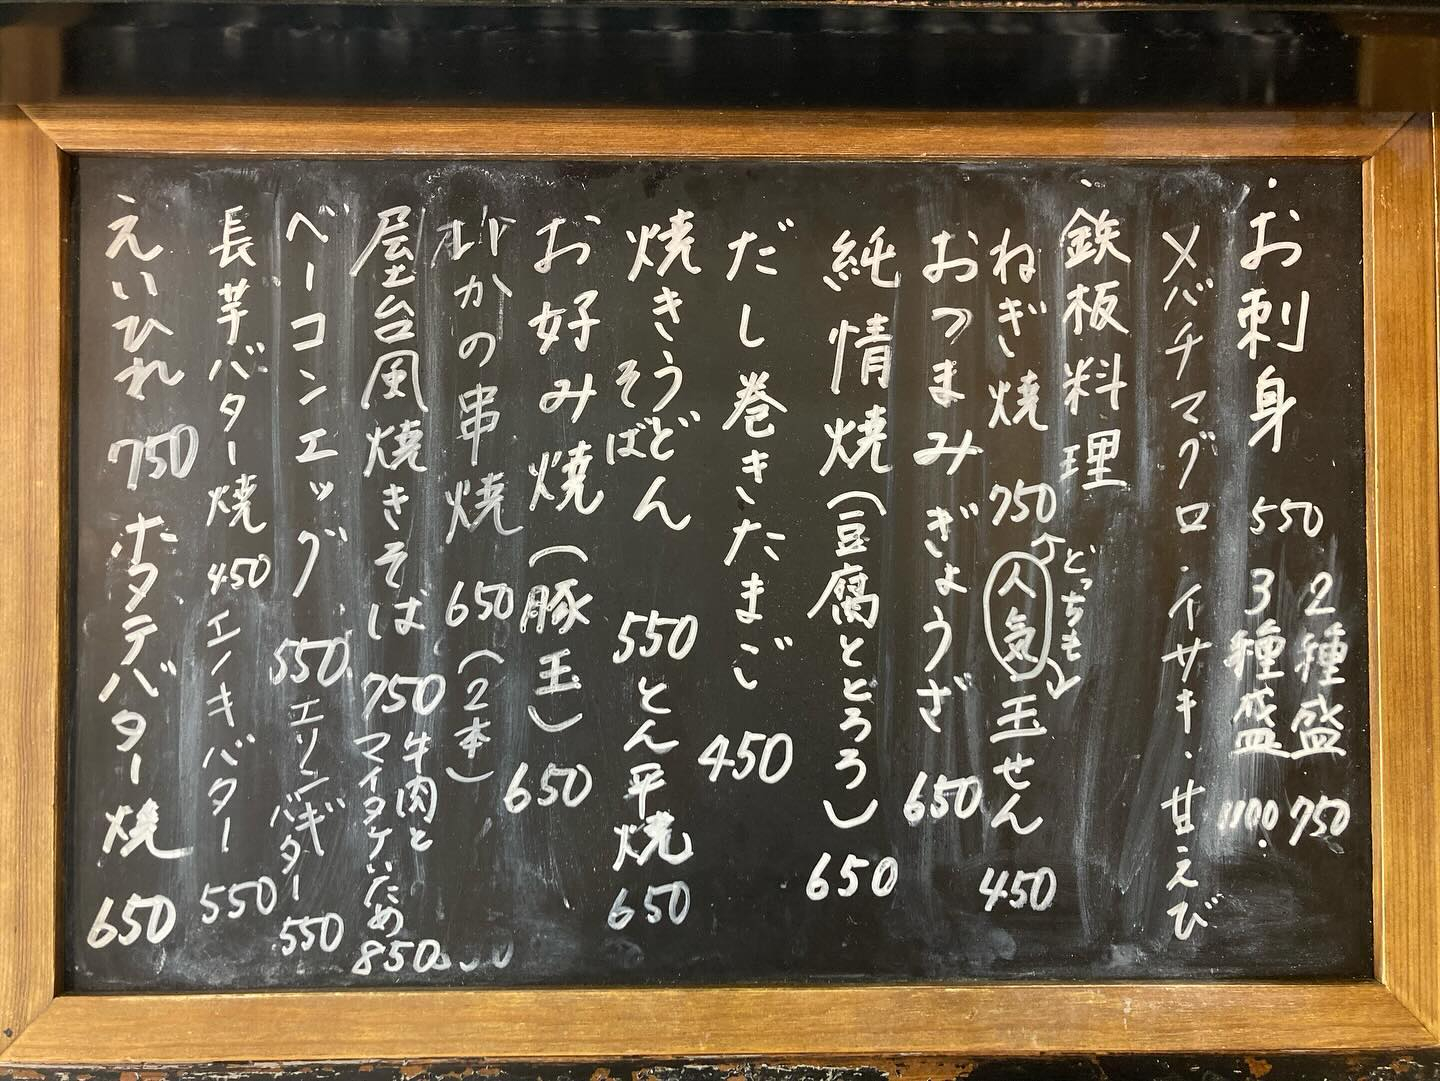 お刺身 550 2種盛 750
3種盛 1100.
メバチマグロ・イサキ・甘えび
鉄板料理
ねぎ焼 750 人気 玉せん 450
どっちも
おつまみぎょうざ 650
純情焼(豆腐ととろろ) 650
だし巻きたまご 450
焼きうどん 550 とん平焼 650
そば
お好み焼(豚玉) 650
いかの串焼 650(2本)
屋台風焼きそば 750 牛肉と
マイタケいため 850
ベーコンエッグ 550 エリンギ
バター 550
長芋バター焼 450 エノキバター 550
えいひれ 750 ホタテバター焼 650